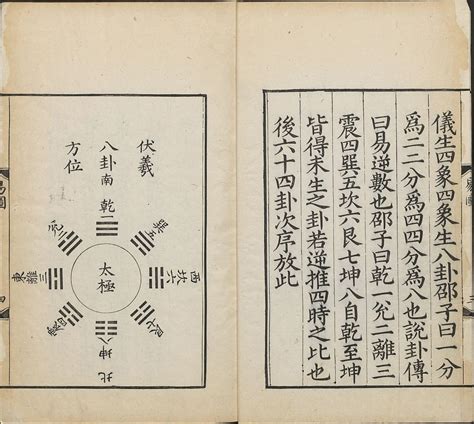 儀生四象四象生八卦邵子曰一分
為二二分為四四分為八也說卦傳
曰易逆數也邵子曰乾一兌二離三
震四巽五坎六艮七坤八自乾至坤
皆得未生之卦若逆推四時之比也
後六十四卦次序放此
伏羲
八卦
方位
南
乾一
兌二
巽五
東
離三
太極
西
坎六
震四
艮七
坤八
北
易圖
四